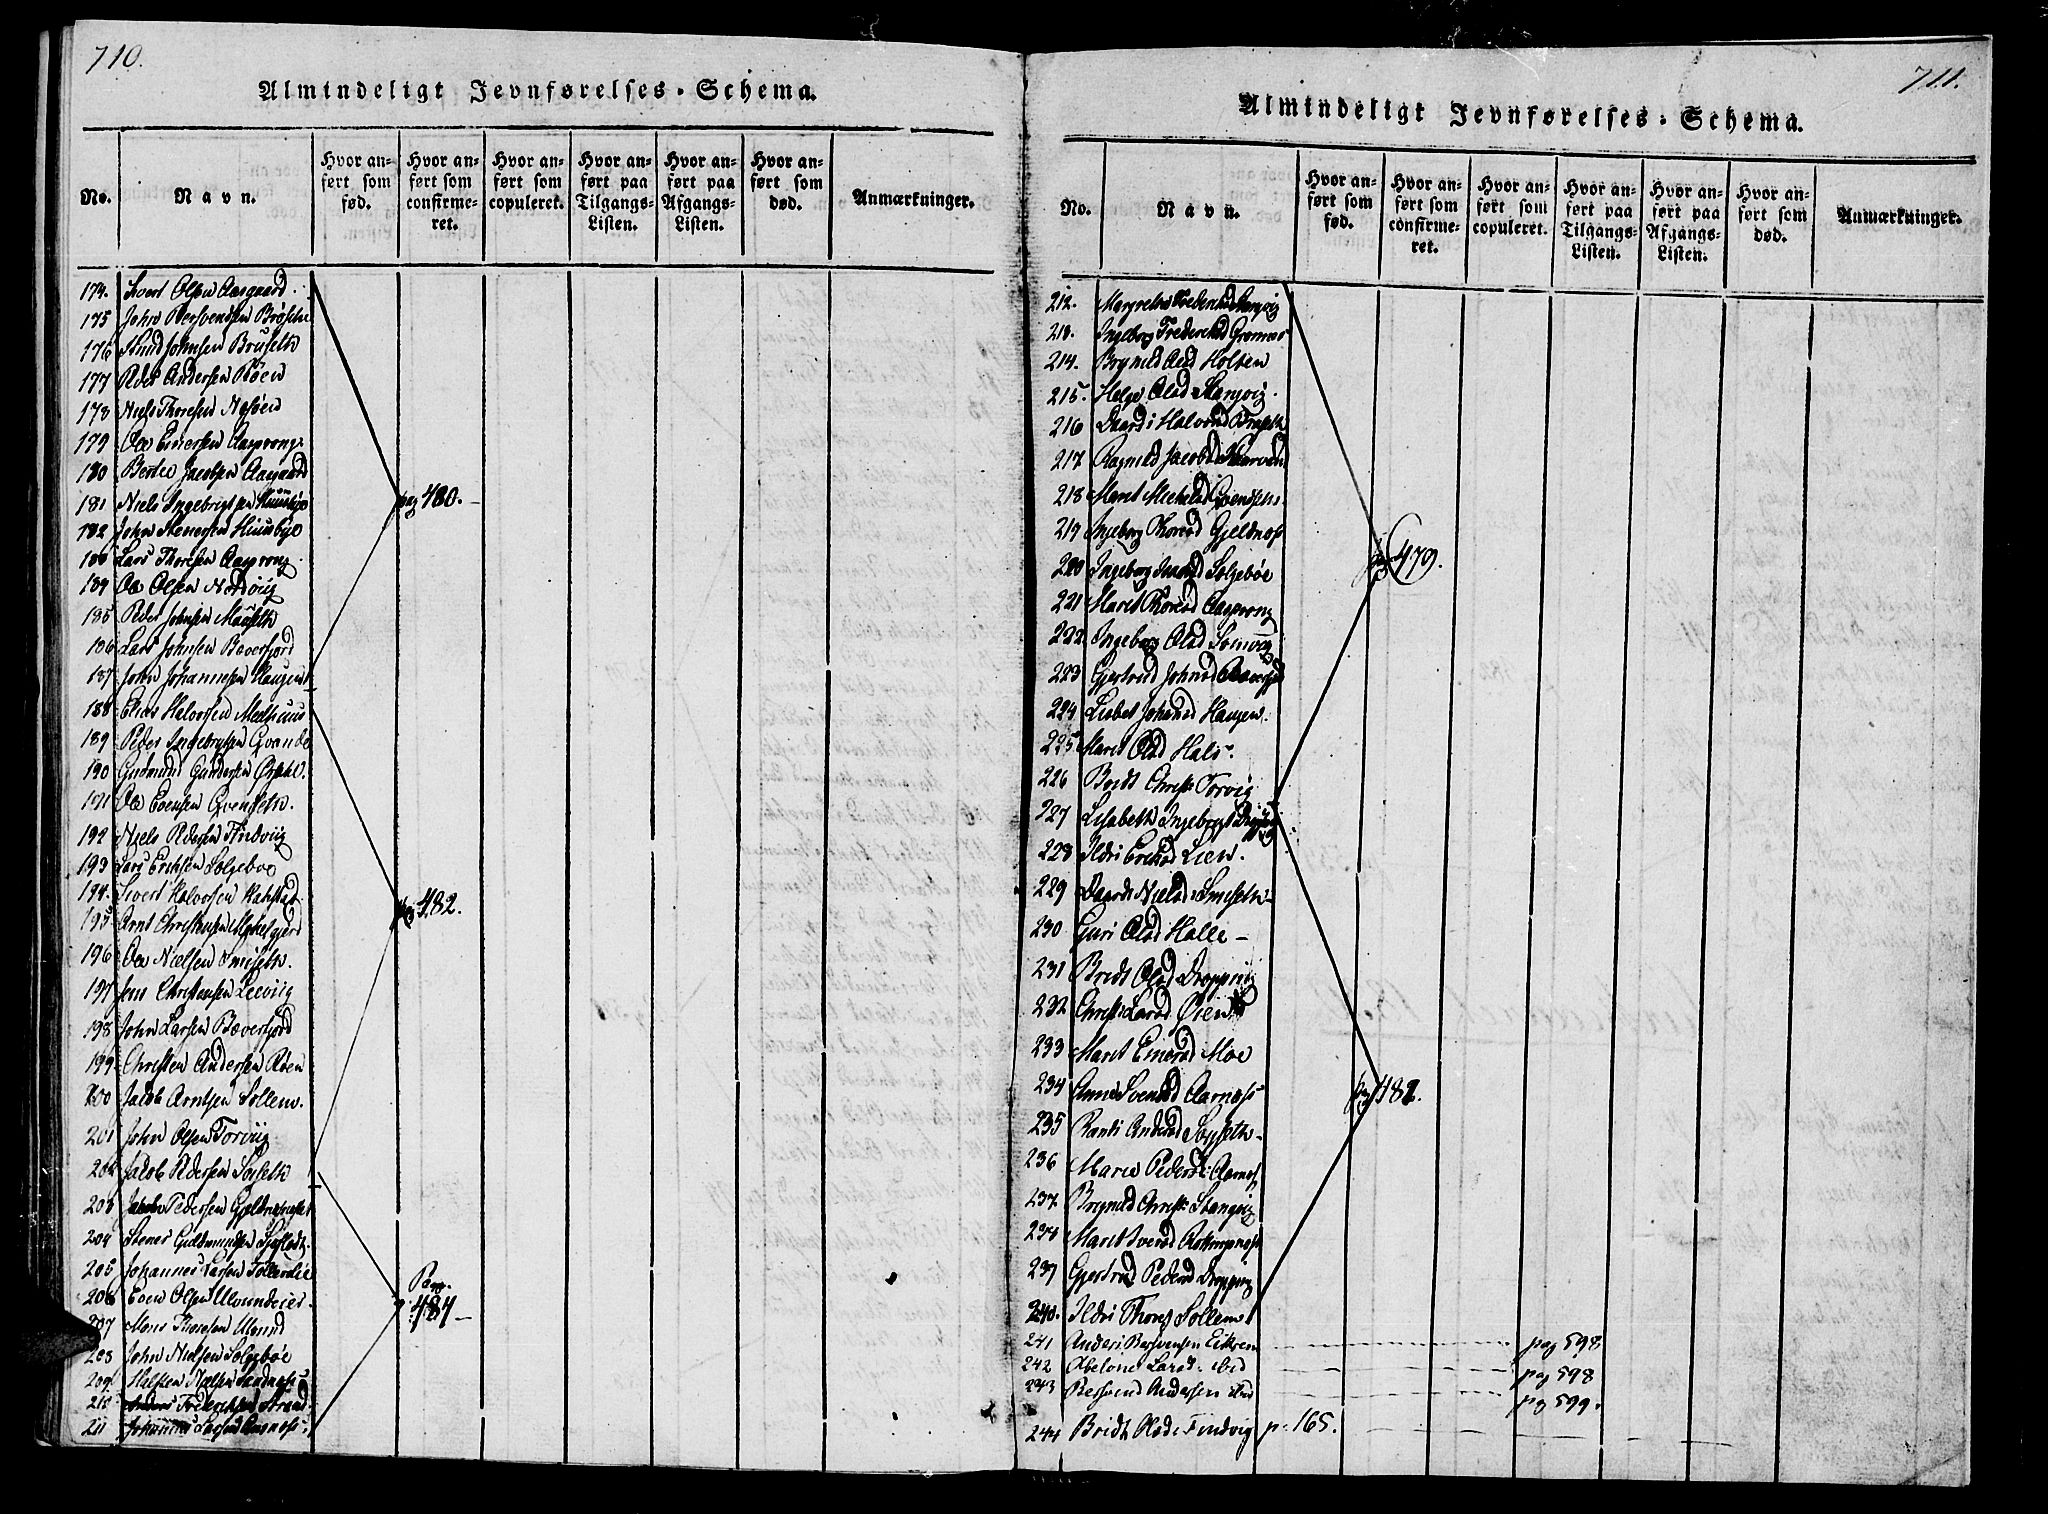 710.
Almindeligt Jevnførelses-Schema.
No.
Navn.
Hvor anført som fød.
Hvor anført som confirmeret.
Hvor anført som copuleret.
Hvor anført paa Tilgangs-Listen.
Hvor anført paa Afgangs-Listen.
Hvor anført som død.
Anmærkninger.
174. Sivert Olsen Aasgaard.
175 John Bersvendsen Brøseth
176 Knud Johnsen Bruseth
177 Peder Andersen Røen
178 Niels Thoresen Nesøen
179 Ole Einersen Aasprong.
180 Bertel Jacobsen Aasgaard
181 Niels Ingebrigtsen Huusbye pag 480.
182 John Stenersen Huusbye
183 Lars Thoresen Aasprong.
184 Ole Olsen Nordvig
185 Peder Johnsen Mauseth
186 Lars Johnsen Bæverfjord
187 John Johannesen Haugen
188 Elias Halvorsen Melhuus
189 Peder Ingebrigtsen Qvande
190 Gudmund Gundersen
191 Ole Evensen Qvenseth.
192 Niels Pedersen Findvig
193 Lars Eriksen Solgebøe
194. Sivert Halvorsen Halstad pag 482.
195 Arnt Christensen
196 Ole Nielsen Smiseth.
197 Jens Christensen Leervig
198 John Larsen Bæverfjord
199 Christen Andersen Røen
200 Jacob Arntsen Sollem.
201 John Olsen Torvig
202 Jacob Pedersen Sæseth
203 Pedersen Gjeldnæs
204 Stener Gudmundsen
205 Johannes Larsen
206 Even Olsen Pag. 484
207 Mons Thoresen
208 John Nielsen Solgebøe
209 Halsten Nielsen Sandnæs
210 Anders Friderichsen Strand
211 Johannes Larsen Aarnæs
711.
Almindeligt Jevnførelses-Schema.
No.
Navn.
Hvor anført som fød.
Hvor anført som confirmeret.
Hvor anført som copuleret.
Hvor anført paa Tilgangs-Listen.
Hvor anført paa Afgangs-Listen.
Hvor anført som død.
Anmærkninger.
212. Margrethe Stangvig
213. Ingeborg
214. Brynild Olsd Holten
215. Helge Olsd Stangvig.
216 Halvorsd
217 Ragnild Jacobsd
218 Maret
219 Ingeborg Thoresd Gjeldnæs pag 479.
220 Ingeborg Solgebøe
221 Maret Thoresd Aasprong
222. Ingeborg Olsd
223 Gjertrud Johnsd
224 Lisbet Johansd Haugen.
225 Maret Olsd Hals.
226 Bridt Christd Torvig
227 Lisabeth Ingebrigt
228 Ildri Eriksd Lien.
229 Nielsd Smiseth
230 Guri Olsd Halle
231 Bridt Olsd Dropping
232 Larsd Øien
233 Maret Einersd Moe
234 Anne Svensd Aarnæs pag 481.
235 Randi Andersd Sæseth
236 Marie Pedersd Aarnæs
237. Brynild Christd Stangvig
238 Maret Iversd
239 Gjertrud Pedersd Dropping
240. Ildri Thoresd Sollem
241 Anders Bersvensen Eikrem pag 598
242 Abelone Larsd ibid pag 598
243 Bersvend Andersen ibid pag 599.
244 Bridt Olsd Findvig p. 165.